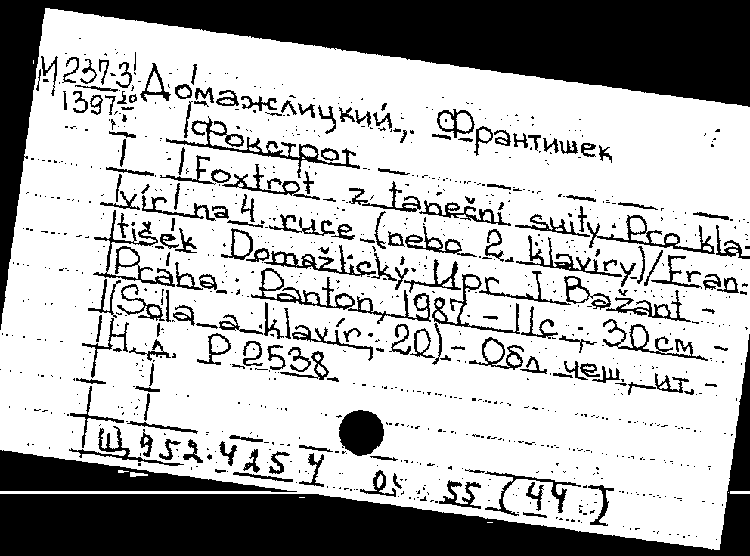 М 237-3 Домажлицкий, Франтишек
1397
Фокстрот
Foxtrot z taneční suity: Pro kla-
vír na 4 ruce (nebo 2 klavíry) / Fran-
tišek Domažlický; Upr. J. Bažant -
Praha: Panton, 1987. - 11с.; 30см -
(Sola a klavír; 20) - Обл. чеш., ит. -
Н.д. P 2538
Щ 952.425 4 05. 55 (44)